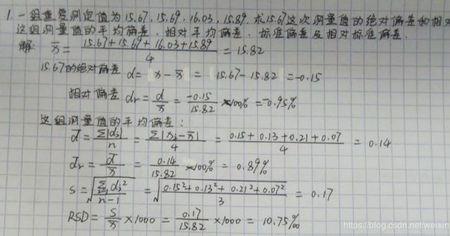 1. 一组重复测定值为15.67, 15.69, 16.03, 15.89. 求15.67这次测量值的绝对偏差和相
这组测量值的平均偏差, 相对平均偏差, 标准偏差及相对标准偏差.
解: x̄ = (15.67+15.67+16.03+15.89)/4 = 15.82
15.67的绝对偏差 d = x - x̄ = 15.67-15.82 = -0.15
相对偏差 dr = d/x̄ = -0.15/15.82 ×100% = -0.95%
这组测量值的平均偏差:
d̄ = Σ|di|/n = Σ|xi-x̄|/4 = (0.15+0.13+0.21+0.07)/4 = 0.14
d̄r = d̄/x̄ = 0.14/15.82 ×100% = 0.89%
S = √(Σdi²/(n-1)) = √((0.15²+0.13²+0.21²+0.07²)/3) = 0.17
RSD = S/x̄ ×1000 = 0.17/15.82 ×1000 = 10.75‰
https://blog.csdn.net/weixin